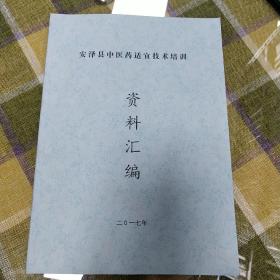 安泽县中医药适宜技术培训
资
料
汇
编
二〇一七年